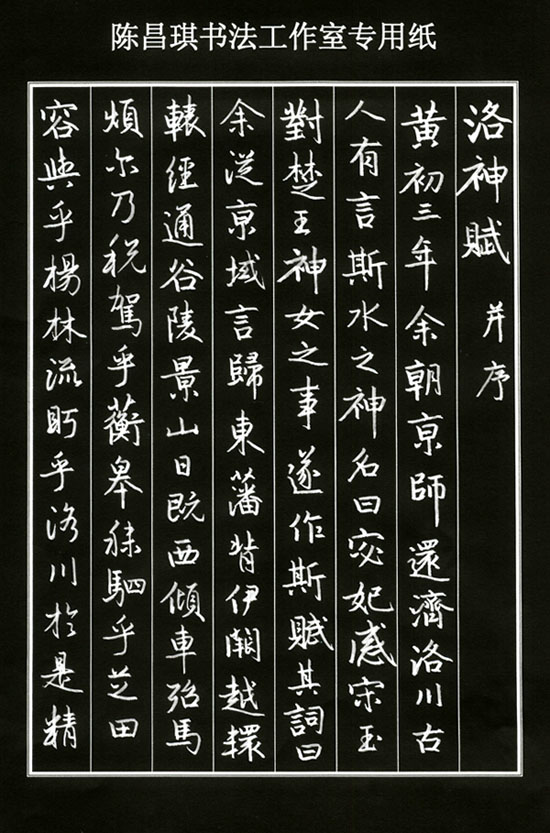 陈昌琪书法工作室专用纸
洛神賦 并序
黄初三年余朝京師還濟洛川古
人有言斯水之神名曰宓妃感宋玉
對楚王神女之事遂作斯賦其詞曰
余從京域言歸東藩背伊闕越轘
轅經通谷陵景山日既西傾車殆馬
煩尔乃税駕乎蘅皋秣駟乎芝田
容與乎楊林流眄乎洛川於是精